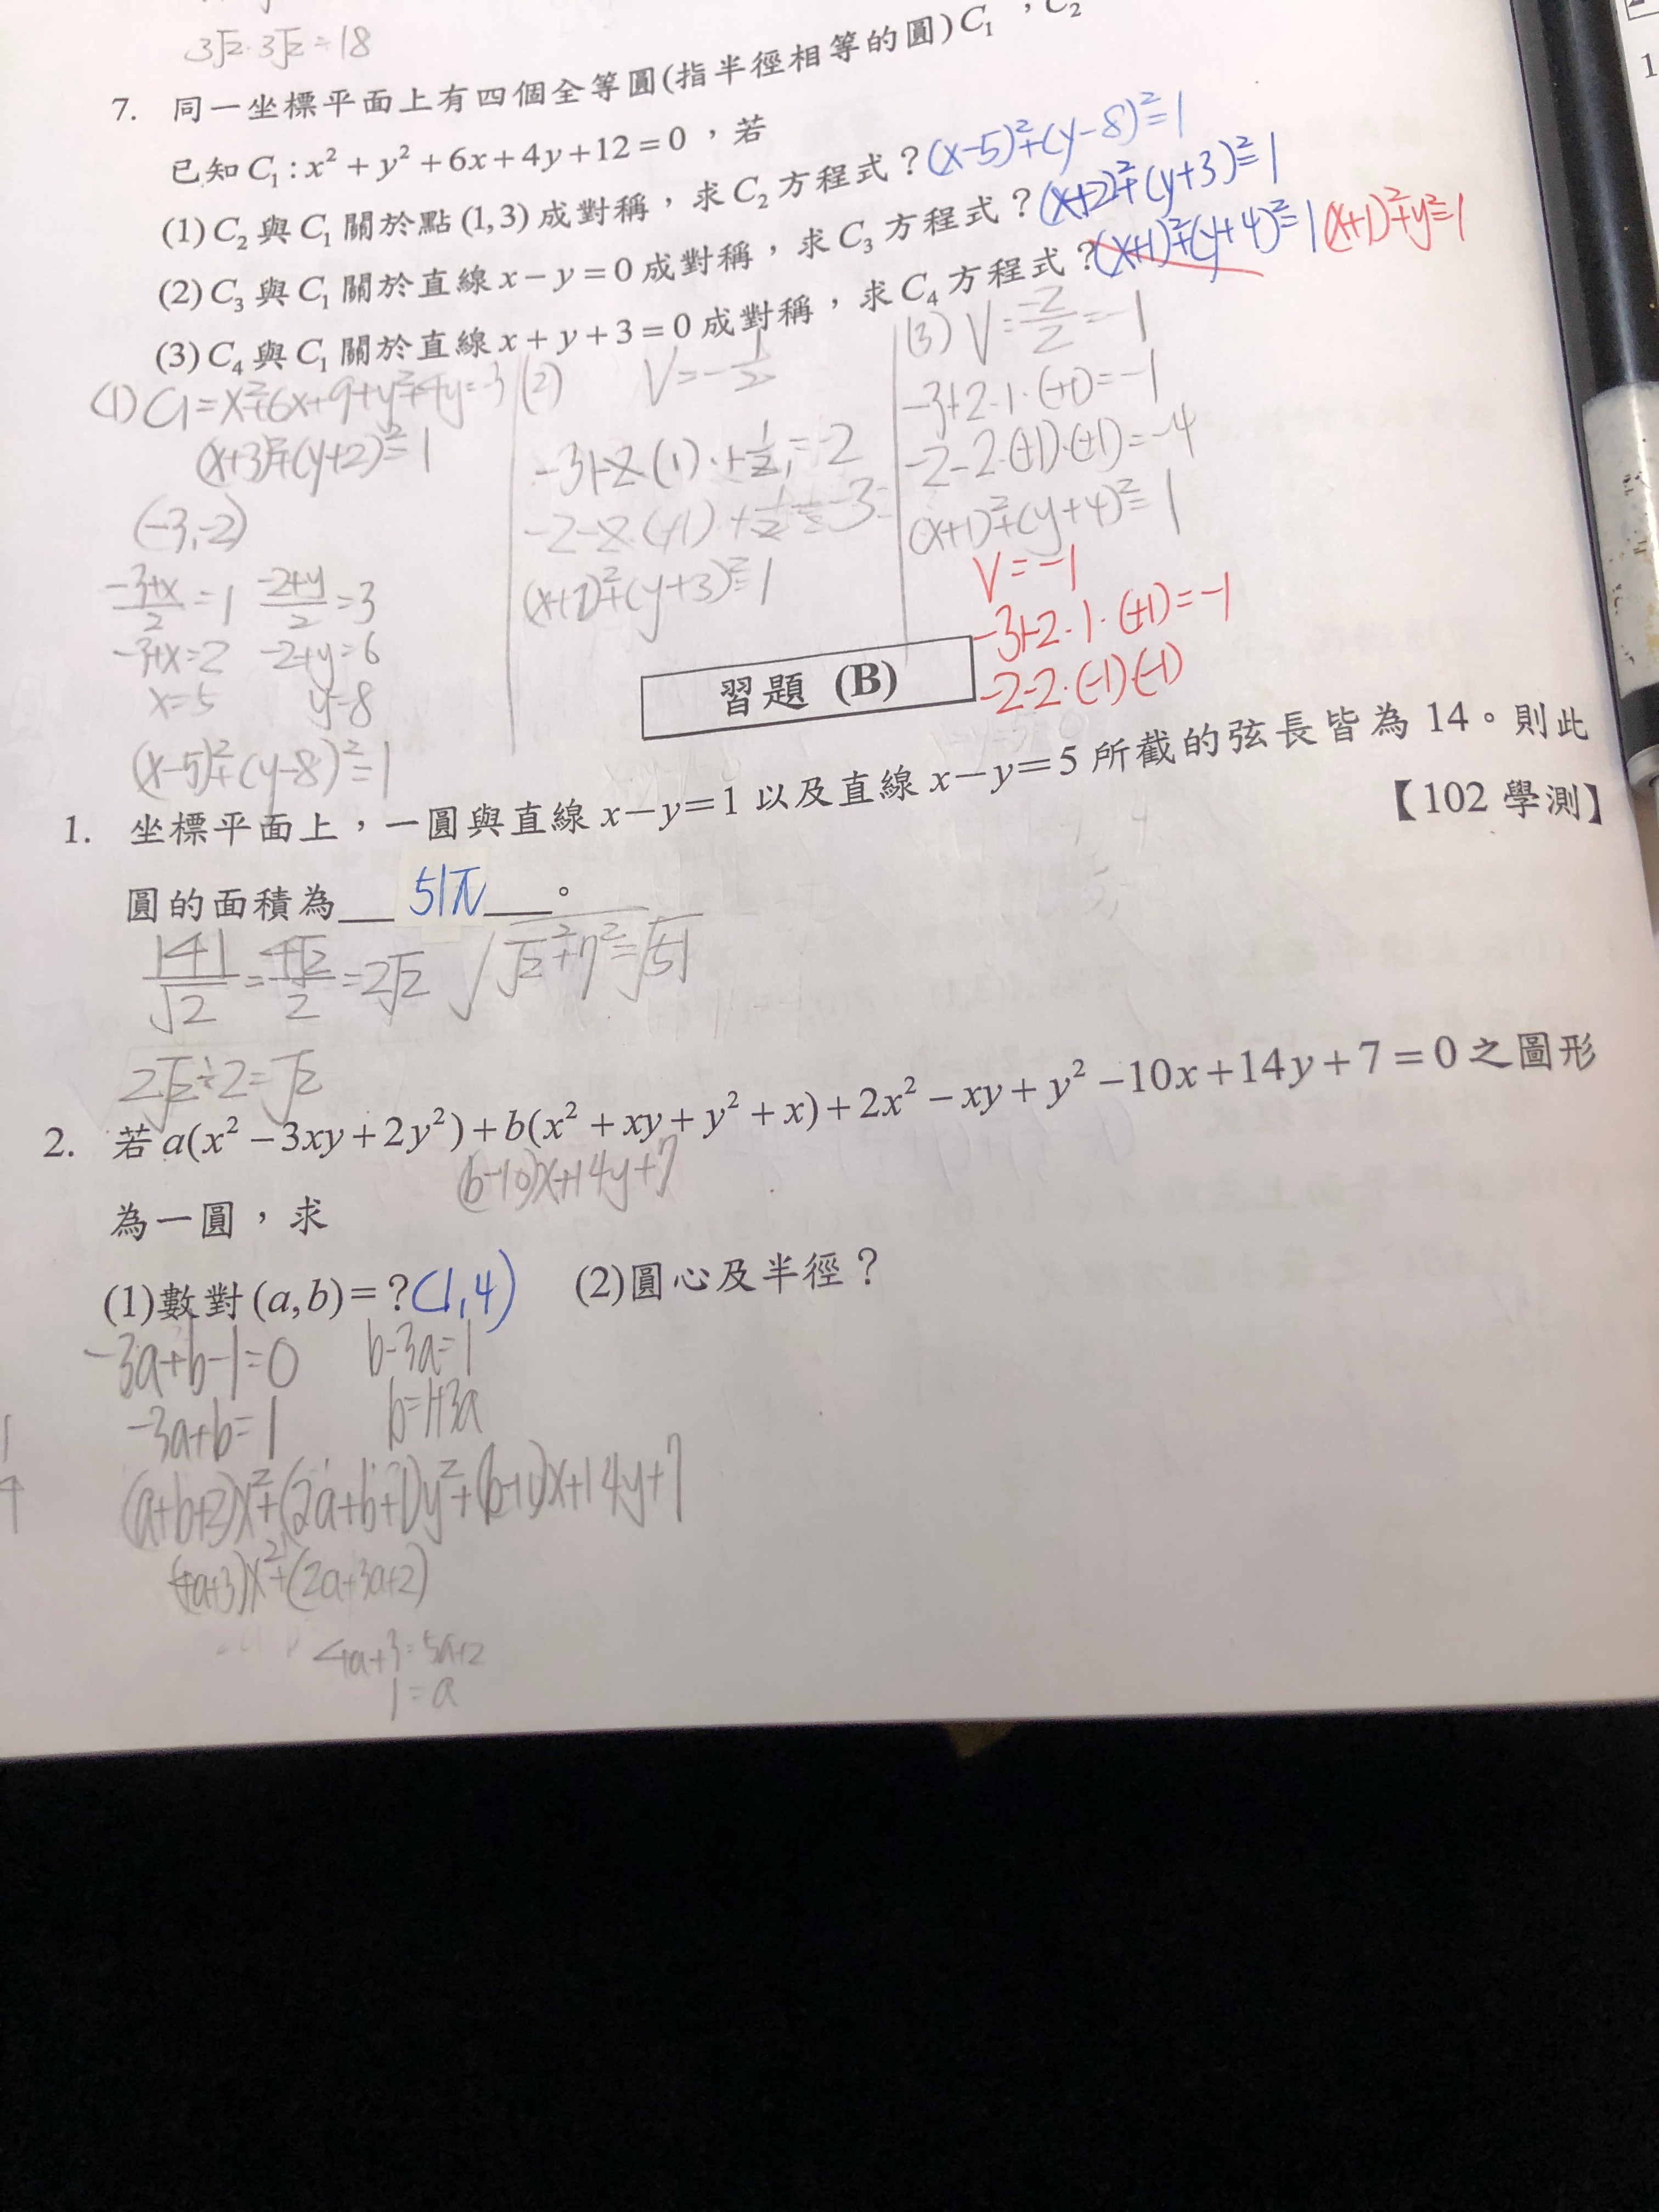 3√2·3√2=18
7. 同一坐標平面上有四個全等圓(指半徑相等的圓)C₁,C₂
已知C₁:x²+y²+6x+4y+12=0,若
(1)C₂與C₁關於點(1,3)成對稱,求C₂方程式?(x-5)²+(y-8)²=1
(2)C₃與C₁關於直線x-y=0成對稱,求C₃方程式?(x+2)²+(y+3)²=1
(3)C₄與C₁關於直線x+y+3=0成對稱,求C₄方程式?(x+1)²+(y+4)²=1 (x+1)²+y²=1
(1) C₁=x²+6x+9+y²+4y=-3
(x+3)²+(y+2)²=1
(-3,-2)
(-3+x)/2=1 (-2+y)/2=3
-3+x=2 -2+y=6
x=5 y=8
(x-5)²+(y-8)²=1
(2) V=-1/2
-3+2·(1)·+1/2=-2
-2-2·(+1)·+1/2=-3
(x+2)²+(y+3)²=1
(3) V=-2/2=-1
-3+2·1·(+1)=-1
-2-2·(+1)·(+1)=-4
(x+1)²+(y+4)²=1
V=-1
-3+2·1·(+1)=-1
-2-2·(-1)·(-1)
習題 (B)
1. 坐標平面上,一圓與直線x-y=1以及直線x-y=5所截的弦長皆為14。則此
圓的面積為 51π 。
【102 學測】
|4|/√2=4√2/2=2√2 √(√2²+7²)=√51
2√2÷2=√2
2. 若a(x²-3xy+2y²)+b(x²+xy+y²+x)+2x²-xy+y²-10x+14y+7=0之圖形
(b-10)x+14y+7
為一圓,求
(1)數對(a,b)=?(1,4) (2)圓心及半徑?
-3a+b-1=0 b-3a=1
-3a+b=1 b=1+3a
(a+b+2)x²+(2a+b+1)y²+(b-10)x+14y+7
(4a+3)x²+(2a+3a+2)
4a+3=5a+2
1=a